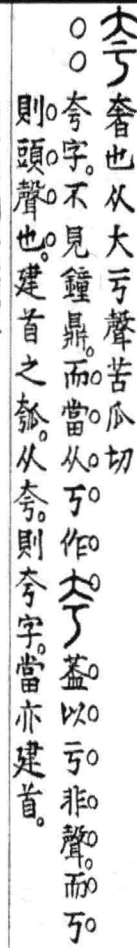 夸奢也从大亏聲苦瓜切
○○夸字。不見鐘鼎。而當从丂作夸蓋以亏非聲。而丂
則頭聲也。建首之瓠。从夸。則夸字。當亦建首。